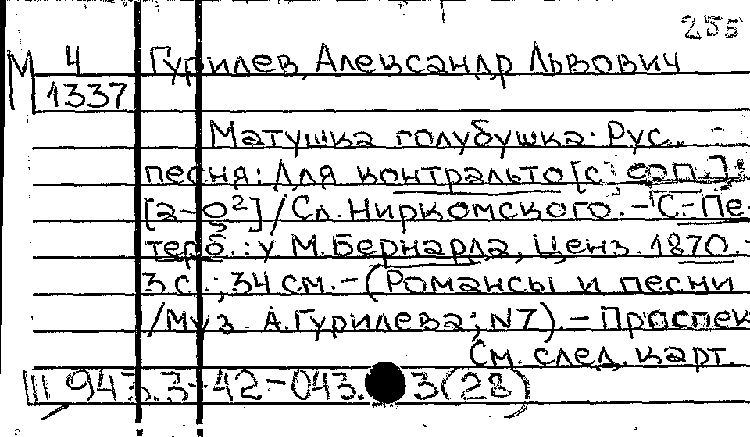 255
М 4 Гурилев, Александр Львович
1337
Матушка голубушка: Рус. -
песня: Для контральто [с фп.]:
[a-0²] / Сл. Ниркомского. - С.-Пе-
терб.: у М. Бернарда, Ценз. 1870. -
3 с.; 34 см. - (Романсы и песни
/Муз. А. Гурилева; N7). - Проспек
См. след. карт.
Ш 943.3-42-043. 3(28)